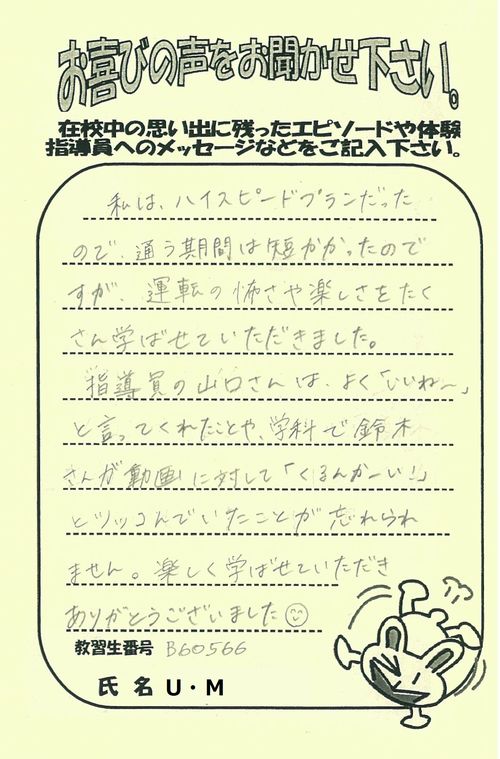 お喜びの声をお聞かせ下さい。
在校中の思い出に残ったエピソードや体験
指導員へのメッセージなどをご記入下さい。
私は、ハイスピードプランだった
ので、通う期間は短かかったので
すが、運転の怖さや楽しさをたく
さん学ばせていただきました。
指導員の山口さんは、よく「いいね〜」
と言ってくれたことや、学科で鈴木
さんが動画に対して「くるんかーい!」
とツッコんでいたことが忘れられ
ません。楽しく学ばせていただき
ありがとうございました☺
教習生番号 B60566
氏名 U・M